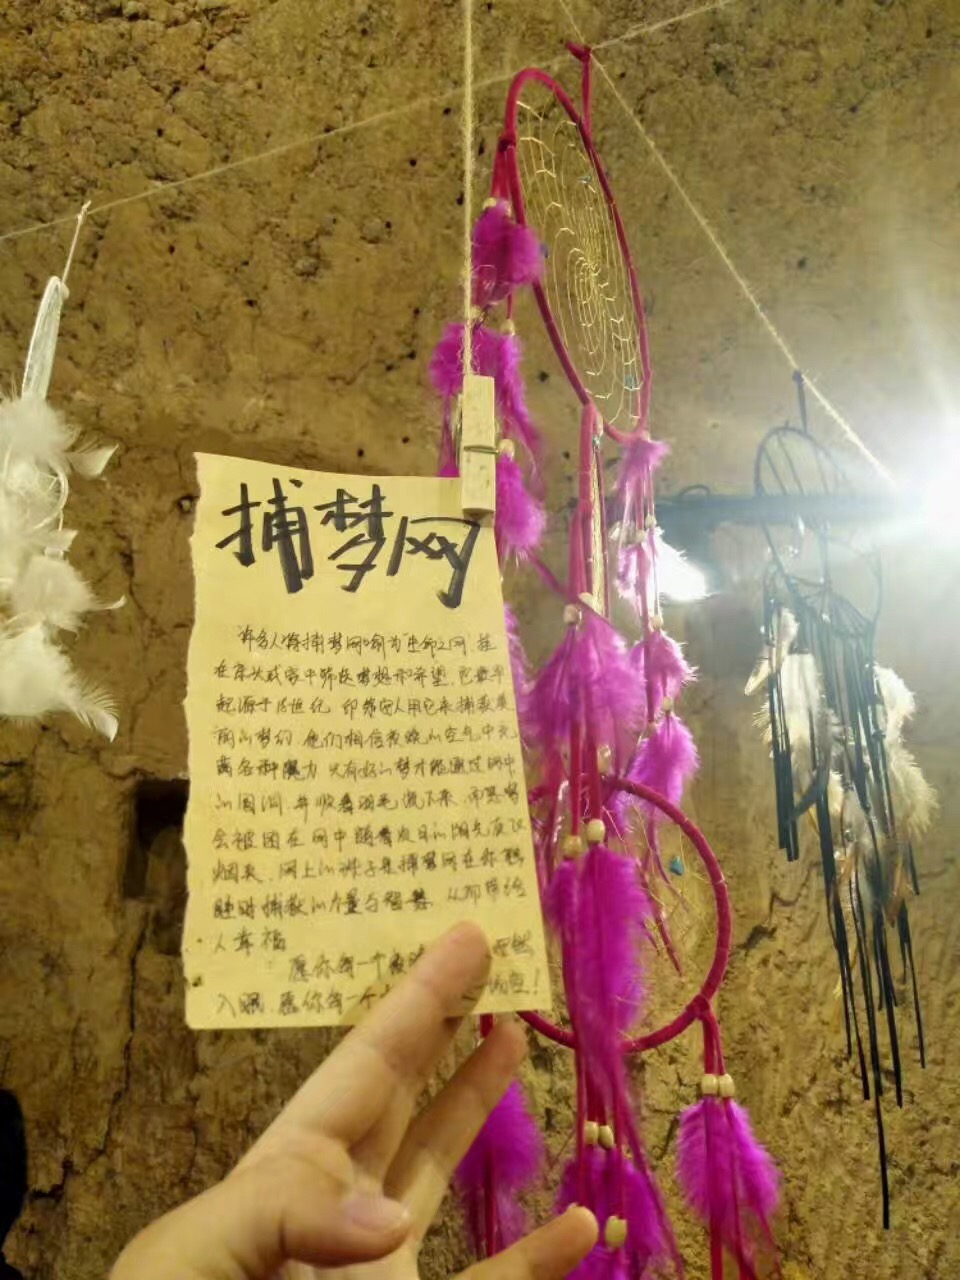 捕梦网
许多人将捕梦网喻为"生命之网"挂
在床头或家中寄托梦想和希望,它最早
起源于18世纪,印第安人用它来捕获美
丽的梦幻,他们相信夜晚的空气中充
满各种魔力 只有好的梦才能通过网中
的圆洞,并顺着羽毛流下来,而恶梦
会被困在网中随着次日的阳光灰飞
烟灭,网上的珠子是捕梦网在你熟
睡时捕获的力量与智慧,从而带给
人幸福
愿你每一个夜
入眠,愿你每一个